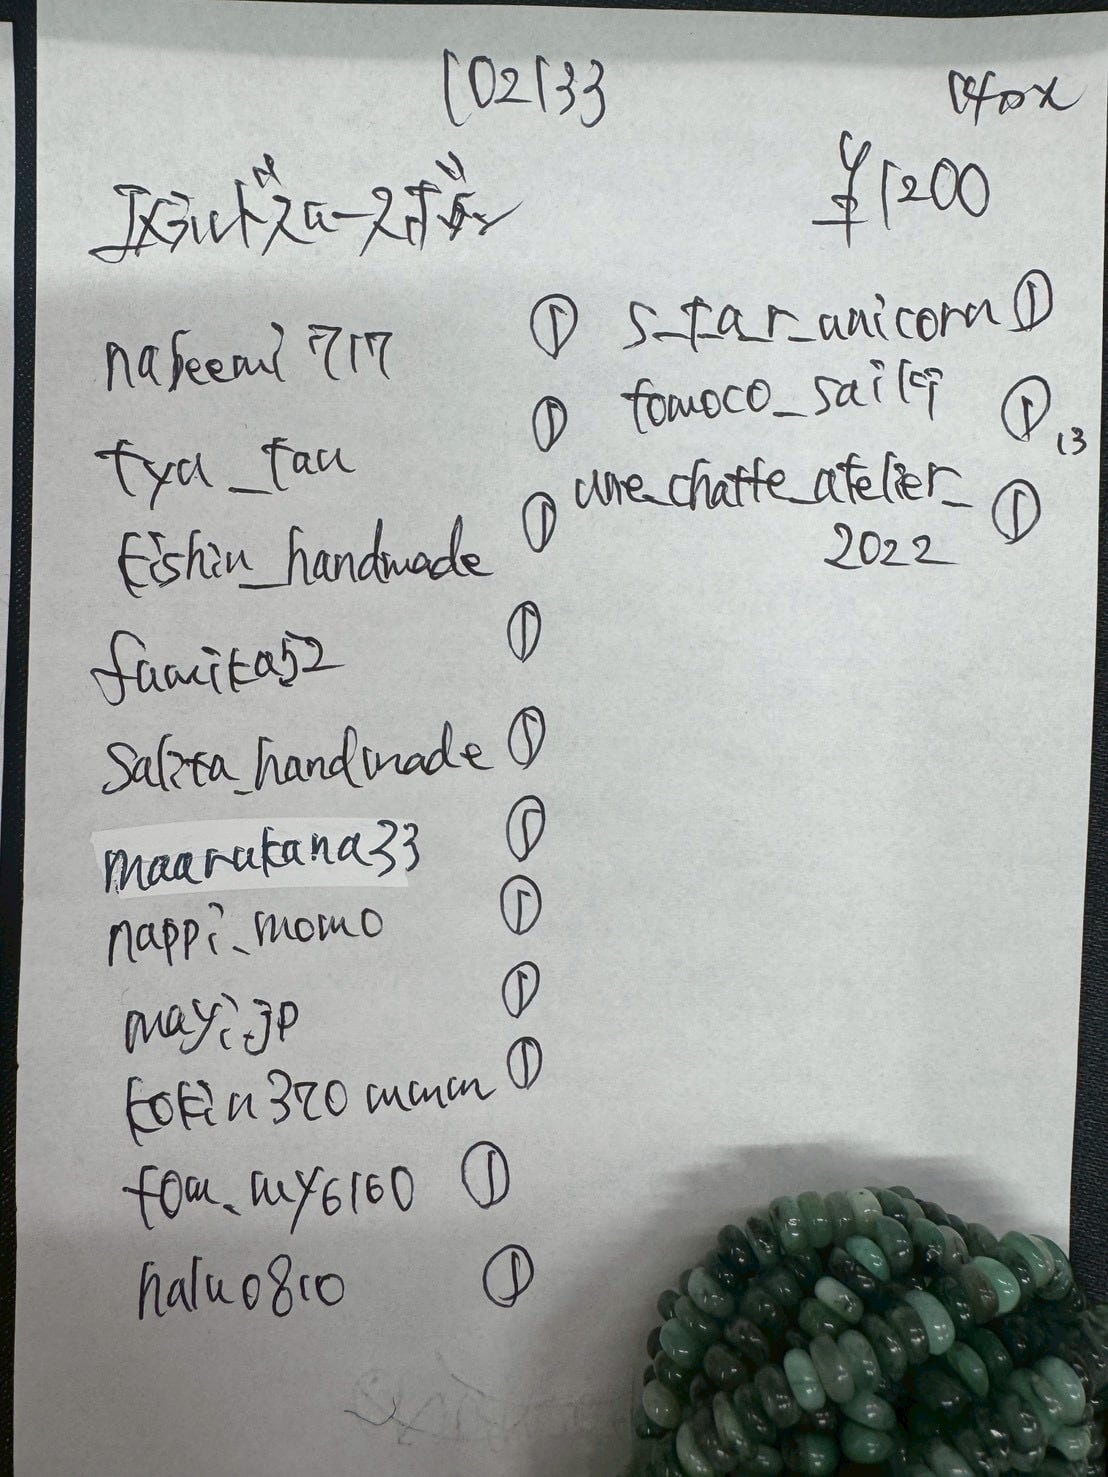 102133
¥1200
エメラルドスムースさざれ
nabeemi717 ①
tya_tau ①
kishin_handmade ①
fumika52 ①
Sakta_handmade ①
maarukana33 ①
nappi_momo ①
mayi.jp ①
kokin370mmm ①
tom_my6160 ①
halu0810 ①
s_t_a_r_unicorn ①
tomoco_saiki ①
13
une_chatte_atelier_
2022 ①